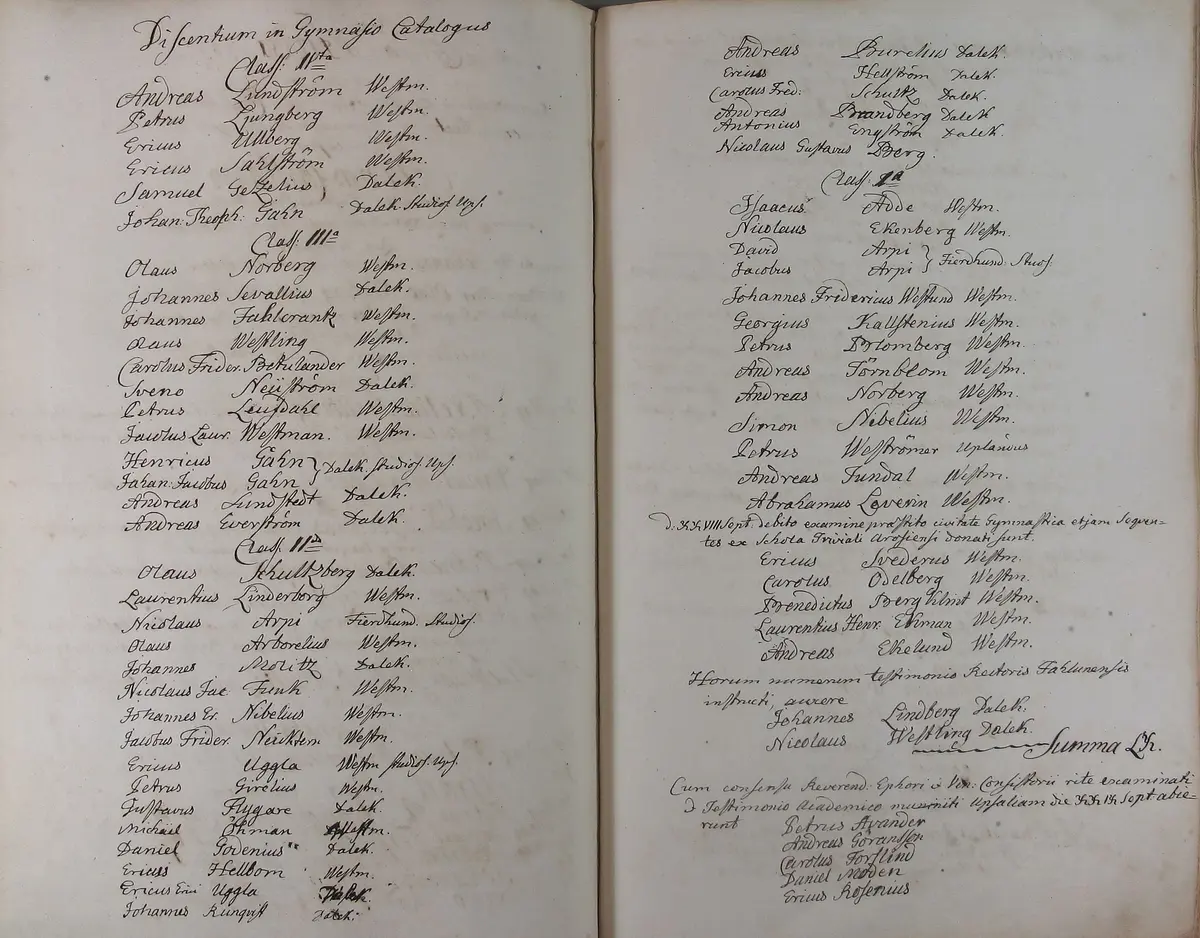 Discentium in Gymnasio Catalogus
Class. IVta
Andreas Lundström Westm.
Petrus Ljungberg Westm.
Ericus Ullberg Westm.
Ericus Sahlström Westm.
Samuel Gezelius Dalek.
Johan: Theoph: Gahn Dalek. Studios. Ups.
Class. IIIa
Olaus Norberg Westm.
Johannes Sevallius Dalek.
Johannes Fahlcrantz Westm.
Olaus Westling Westm.
Carolus Frider. Betulander Westm.
Sveno Neüström Dalek.
Petrus Leufdahl Westm.
Jacobus Laur. Westman. Westm.
Henricus Gahn } Dalek. Studios. Ups.
Johan: Jacobus Gahn
Andreas Lundstedt Dalek.
Andreas Everström Dalek.
Class. IIda
Olaus Schultzberg Dalek.
Laurentius Linderborg Westm.
Nicolaus Arpi Fierdhund. Studios.
Olaus Arborelius Westm.
Johannes Molitz Dalek.
Nicolaus Jac Funk Westm.
Johannes Er. Nibelius Westm.
Jacobus Frider. Westm.
Ericus Uggla Westm Studios. Ups.
Petrus Givelius Westm.
Gustavus Flygare Dalek.
Michaël Öhman Westm.
Daniel Godenius Dalek.
Ericus Hellbom Westm.
Ericus Eric Uggla Dalek.
Johannes Runqvist Dalek.
Andreas Burelius Dalek.
Ericus Hellström Dalek.
Carolus Fred: Schultz Dalek.
Andreas Brandberg Dalek
Antonius Engström Dalek.
Nicolaus Gustavus Berg.
Class. Ia
Isaacus Adde Westm.
Nicolaus Ekenberg Westm.
David Arpi } Fierdhund. Studios.
Jacobus Arpi
Johannes Fridericus Westlund Westm.
Georgius Kallstenius Westm.
Petrus Blomberg Westm.
Andreas Törnblom Westm.
Andreas Norberg Westm.
Simon Nibelius Westm.
Petrus Weströmer Uplandus
Andreas Fundal Westm.
Abrahamus Leverin Westm.
d. XXVIII Sept. debito examine præstito civitate Gymnastica etjam Sequen-
tes ex Schola Triviali Arosiensi donati sunt.
Ericus Svederus Westm.
Carolus Odelberg Westm.
Benedictus Bergholmt Westm.
Laurentius Henr. Ekman Westm.
Andreas Ekelund Westm.
Horum numerum testimonio Rectoris Fahlunensis
instructi, auxere
Johannes Lindberg Dalek.
Nicolaus Westling Dalek.
Summa LX.
Cum consensu Reverend. Ephori & Ven: Consistorii rite examinati
& Testimonio Academico muniti Upsaliam die XXIX Sept abie-
runt Petrus Avander
Andreas Göransson
Carolus Forslind
Daniel Moden
Ericus Rosenius